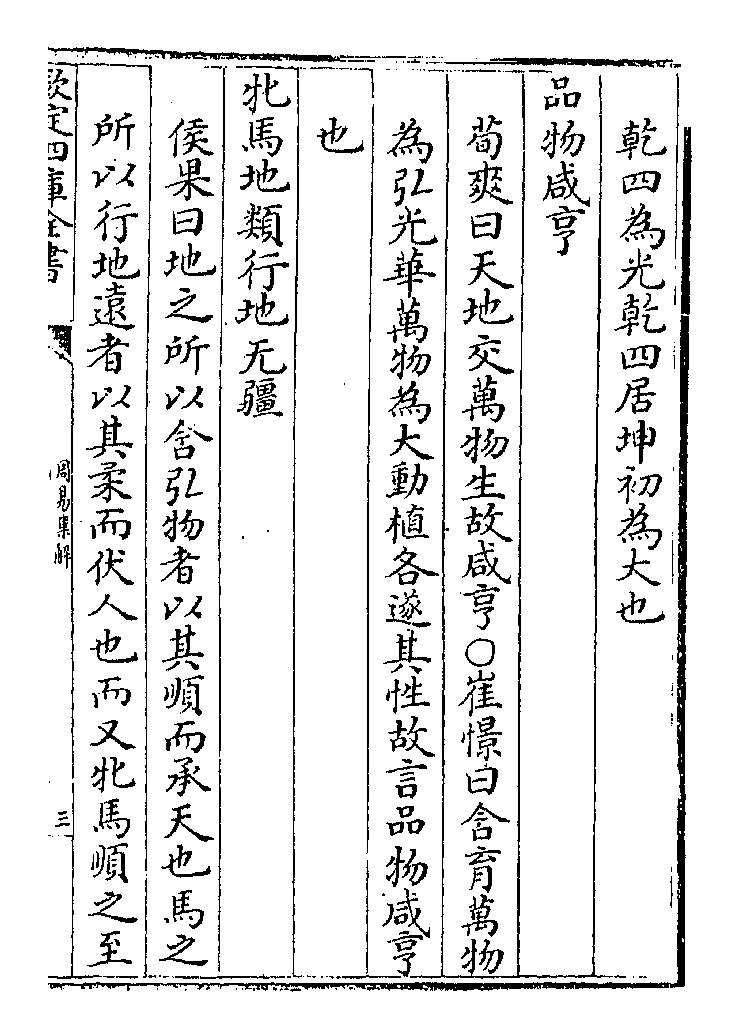 乾四為光乾四居坤初為大也
品物咸亨
荀爽曰天地交萬物生故咸亨〇崔憬曰含育萬物
為弘光華萬物為大動植各遂其性故言品物咸亨
也
牝馬地類行地无疆
侯果曰地之所以含弘物者以其順而承天也馬之
所以行地遠者以其柔而伏人也而又牝馬順之至
欽定四庫全書
周易集解
三